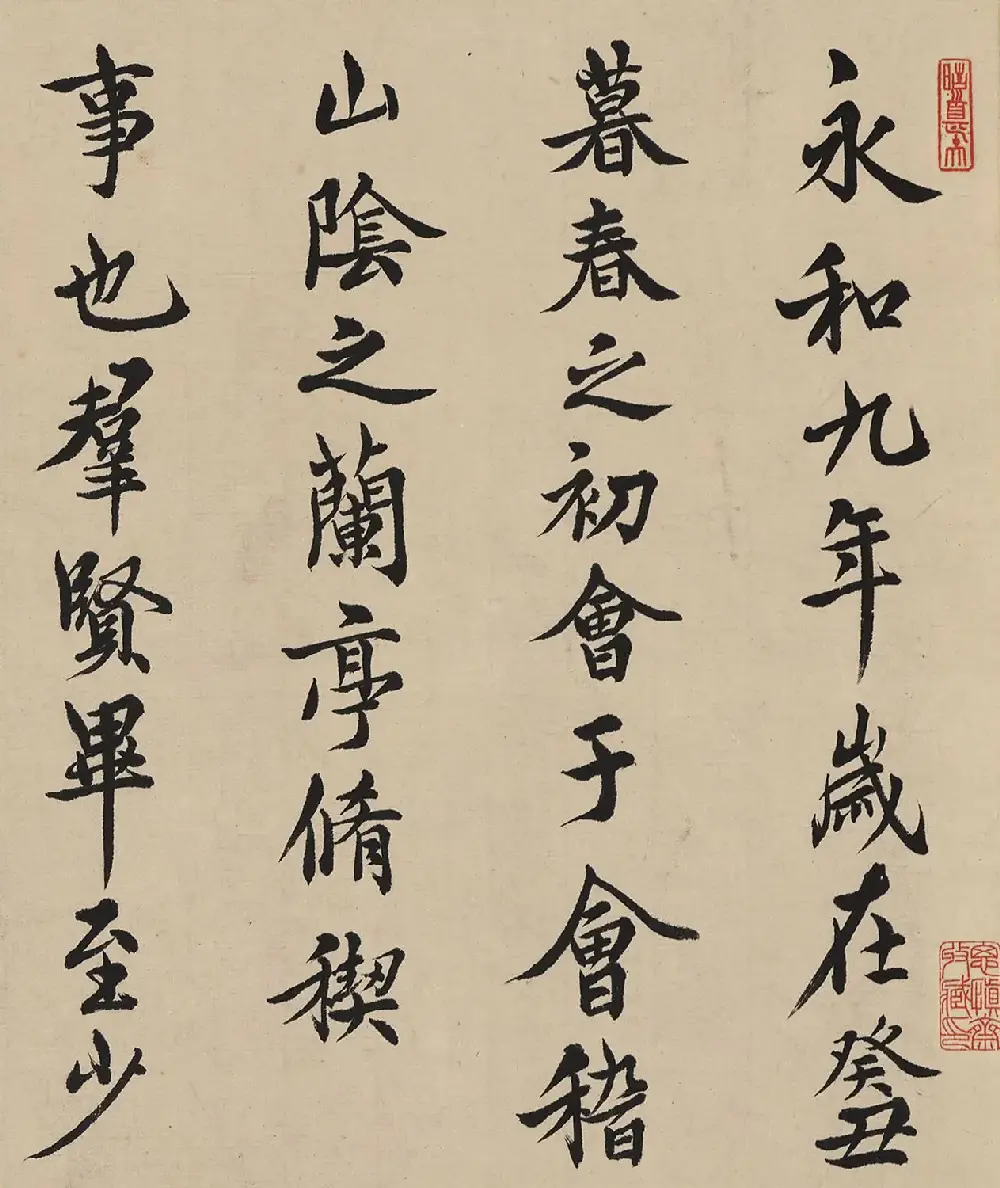 永和九年歲在癸丑
暮春之初會于會稽
山陰之蘭亭脩稧
事也羣賢畢至少